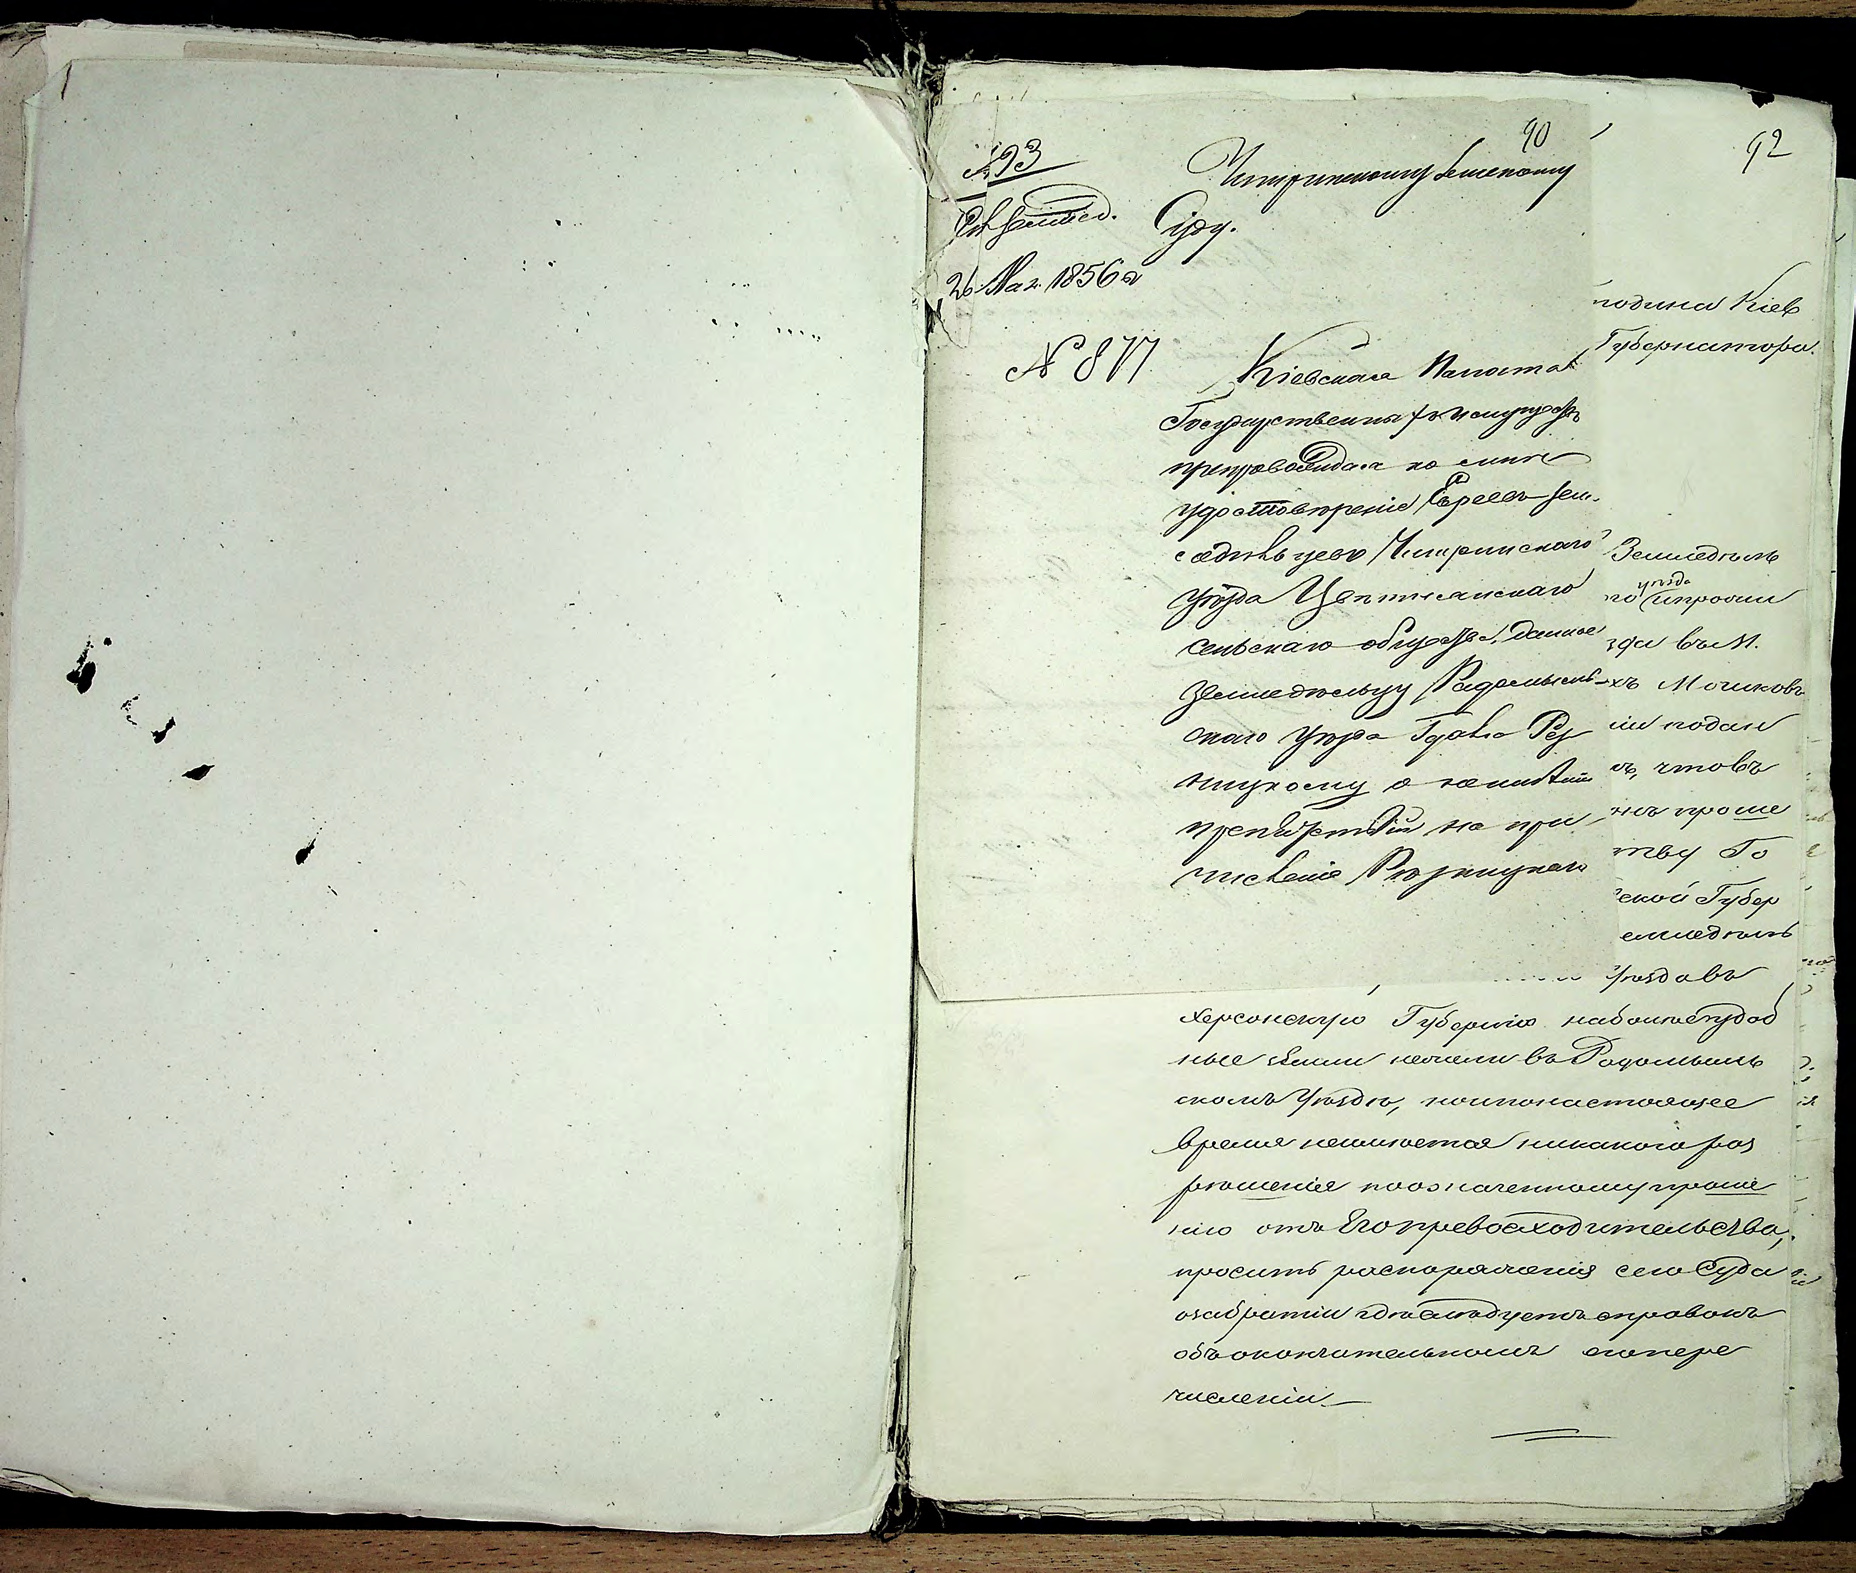 90
92
№ 93
26 Мая 1856 г
№ 877
Чигиринскому Земскому
Суду.
Кіевская Палата
Государственныхъ имуществъ
препровождая ко
удостовѣреніе Евреевъ Зем-
ледѣльцевъ Чигиринскаго
уѣзда
сельскаго общества, данное
Земледѣльцу Радомысль-
скаго уѣзда
о неимѣніи
препятствій на при
численіе Рѣзницкаго
подина Кіев
Губернатора.
Земледѣль
уѣзда
го
зда въ М.
хъ Мошковъ
ии подан
ъ, что въ
нъ проше
тву Го
ской Губер
емледѣль
Уѣзда въ
Херсонскую Губернію на болѣе удоб
ные земли нежели въ Радомысль
скомъ Уѣздѣ, но и по настоящее
время неимѣется никакого раз
рѣшенія по означенному проше
нію отъ Его превосходительства,
проситъ распоряженія сего Суда
о забратіи гдѣ слѣдуетъ справокъ
объ окончательномъ его пере
численіи.